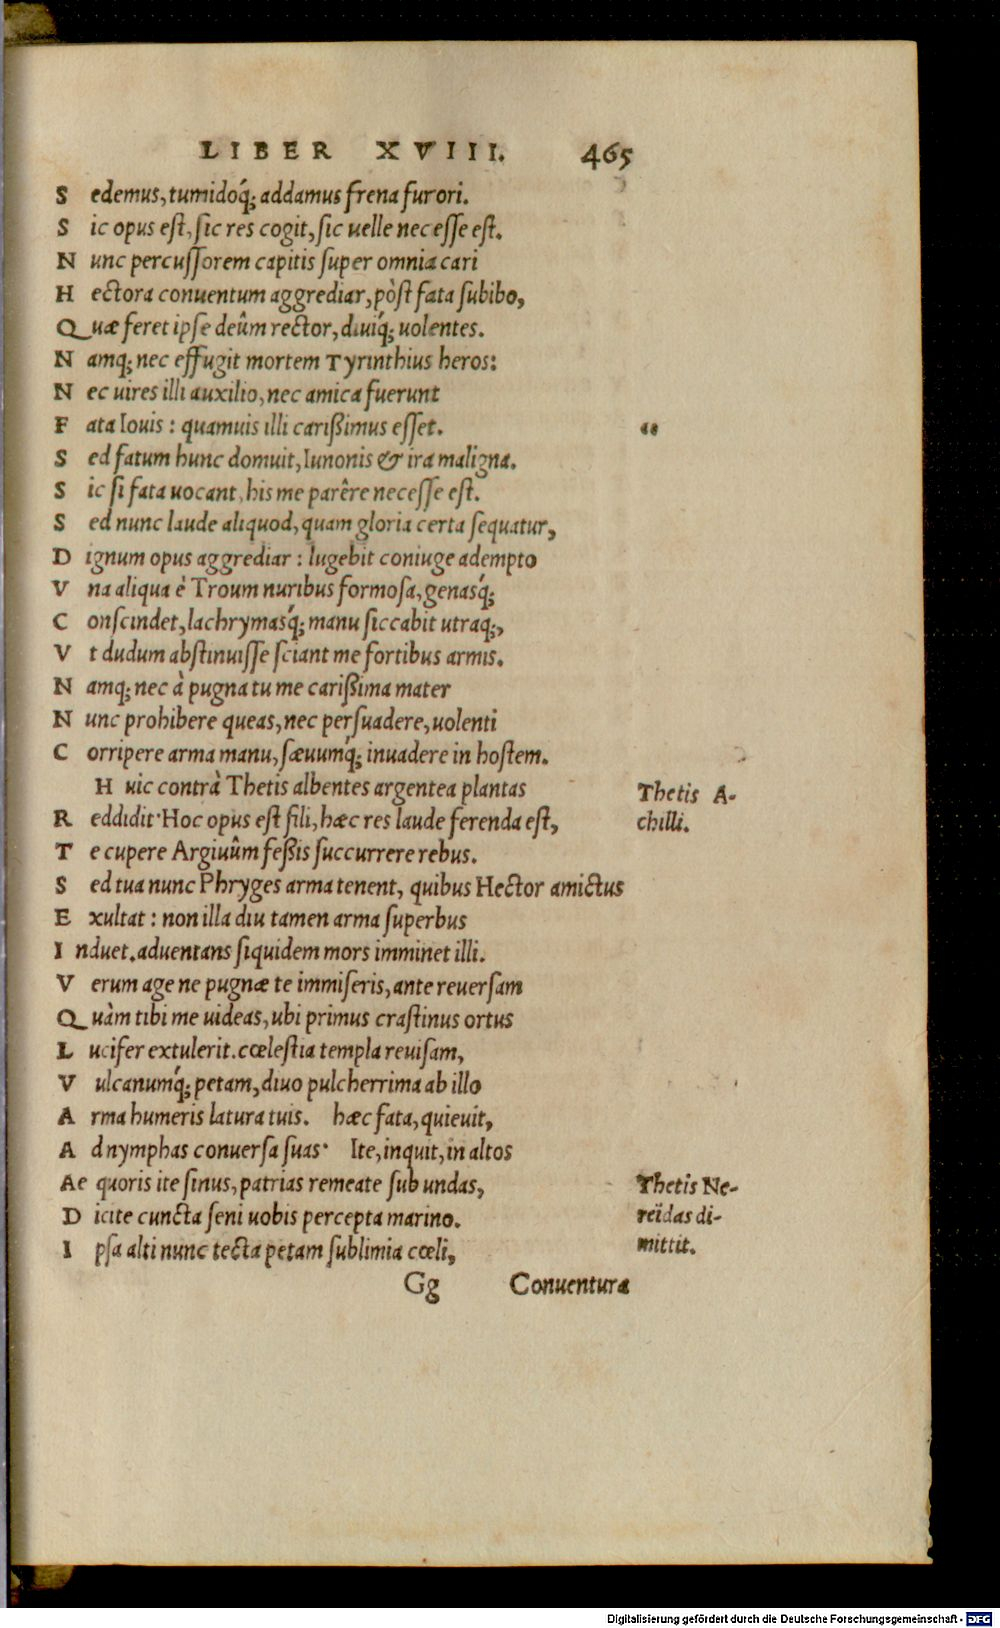 LIBER XVIII. 465
S edemus, tumidoq́; addamus frena furori.
S ic opus est, sic res cogit, sic uelle necesse est.
N unc percussorem capitis super omnia cari
H ectora conuentum aggrediar, pòst fata subibo,
Q uæ feret ipse deûm rector, diuiq́; uolentes.
N amq; nec effugit mortem Tyrinthius heros:
N ec uires illi auxilio, nec amica fuerunt
F ata Iouis : quamuis illi carißimus esset.
S ed fatum hunc domuit, Iunonis & ira maligna.
S ic si fata uocant, his me parêre necesse est.
S ed nunc laude aliquod, quam gloria certa sequatur,
D ignum opus aggrediar : lugebit coniuge adempto
V na aliqua è Troum nuribus formosa, genasq́;
C onscindet, lachrymasq́; manu siccabit utraq;,
V t dudum abstinuisse sciant me fortibus armis.
N amq; nec à pugna tu me carißima mater
N unc prohibere queas, nec persuadere, uolenti
C orripere arma manu, sæuumq́; inuadere in hostem.
H uic contrà Thetis albentes argentea plantas
Thetis A-
R eddidit· Hoc opus est fili, hæc res laude ferenda est,
chilli.
T e cupere Argiuûm feßis succurrere rebus.
S ed tua nunc Phryges arma tenent, quibus Hector amictus
E xultat : non illa diu tamen arma superbus
I nduet. aduentans siquidem mors imminet illi.
V erum age ne pugnæ te immiseris, ante reuersam
Q uàm tibi me uideas, ubi primus crastinus ortus
L ucifer extulerit. cœlestia templa reuisam,
V ulcanumq́; petam, diuo pulcherrima ab illo
A rma humeris latura tuis. hæc fata, quieuit,
A d nymphas conuersa suas· Ite, inquit, in altos
Ae quoris ite sinus, patrias remeate sub undas,
Thetis Ne-
D icite cuncta seni uobis percepta marino.
reïdas di-
I psa alti nunc tecta petam sublimia cœli,
mittit.
Gg Conuentura
Digitalisierung gefördert durch die Deutsche Forschungsgemeinschaft - DFG